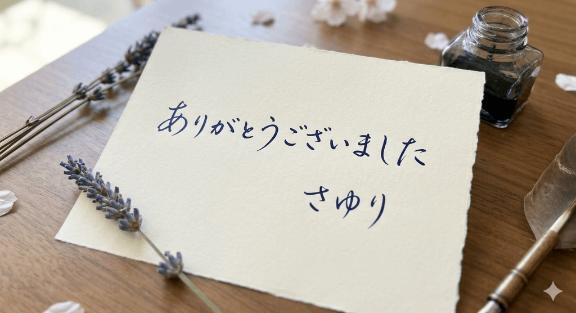 ありがとうございました
さゆり